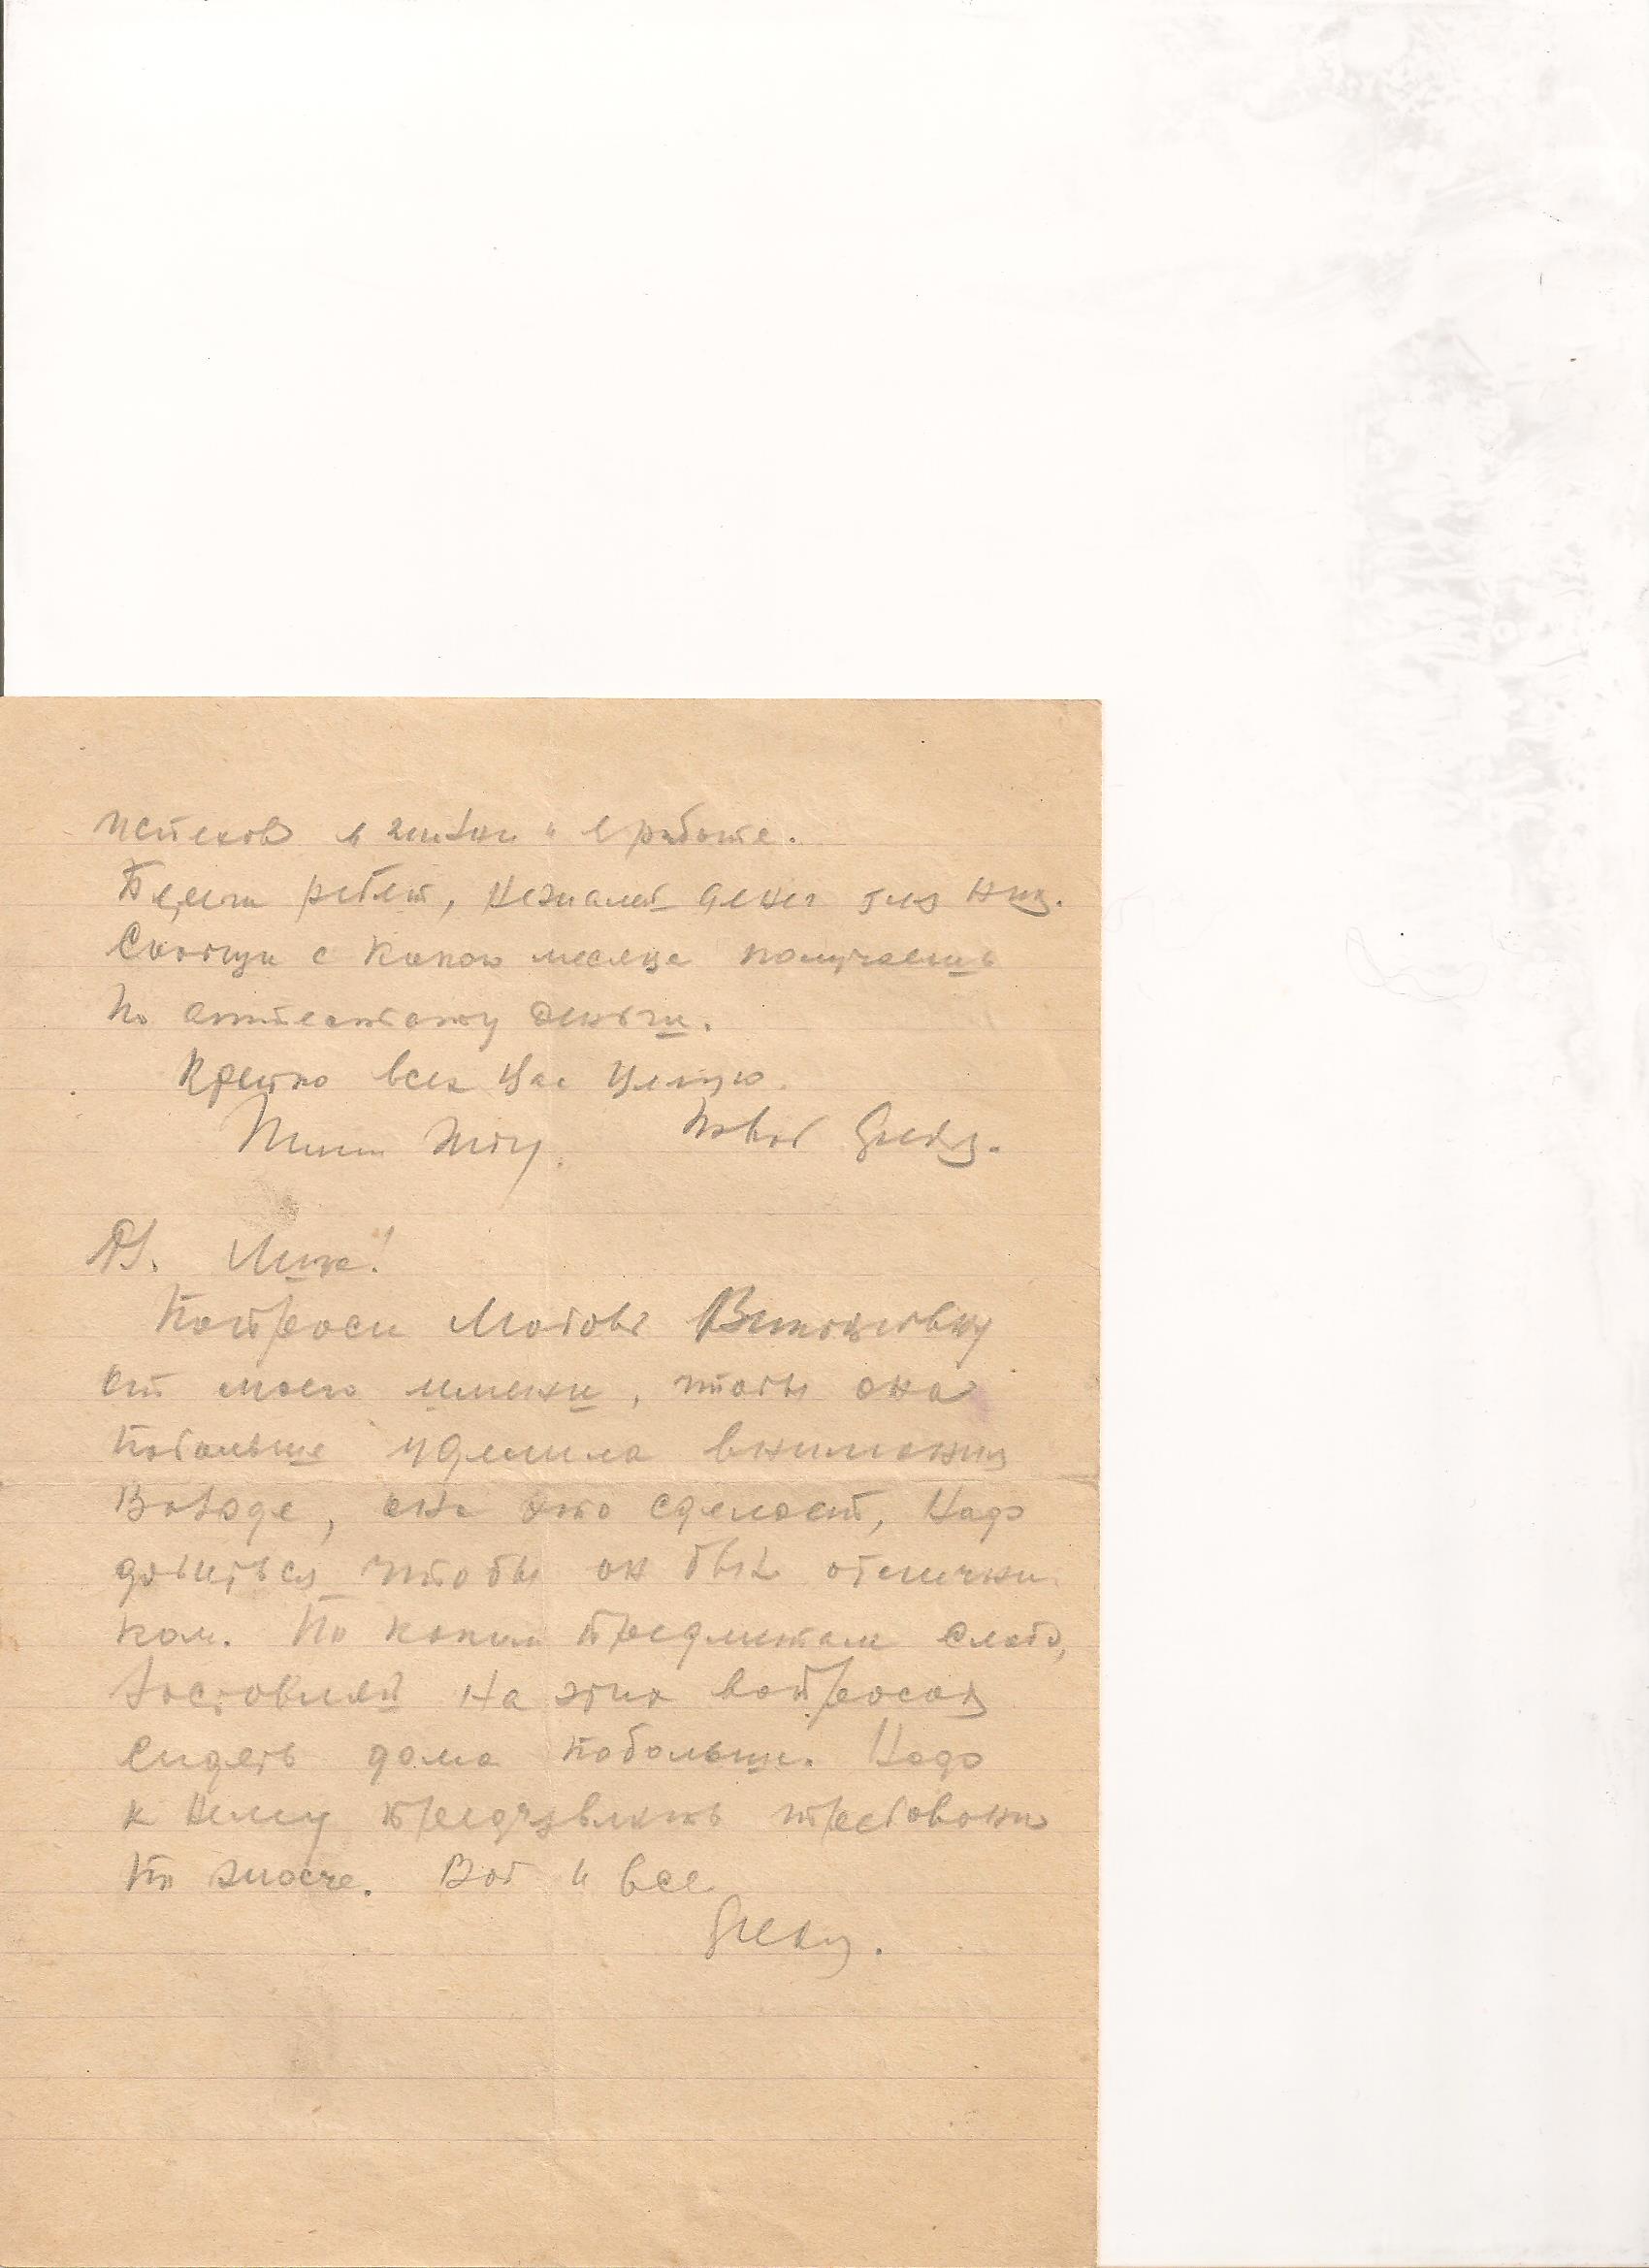 успехов в жизни и в работе.
Береги ребят, не жалей денег для них.
Сообщи с какого месяца получаешь
по аттестату деньги.
Крепко всех Вас целую.
Пиши жду. Ваш
Лиза!
Попроси Любовь
от моего имени, чтобы она
побольше уделила внимания
Володе, она это сделает, надо
добиться чтобы он был отлични
ком. По каким предметам слаб,
заставляй на этих вопросах
сидеть дома побольше. Надо
к нему предъявлять требования
по учебе. Вот и все